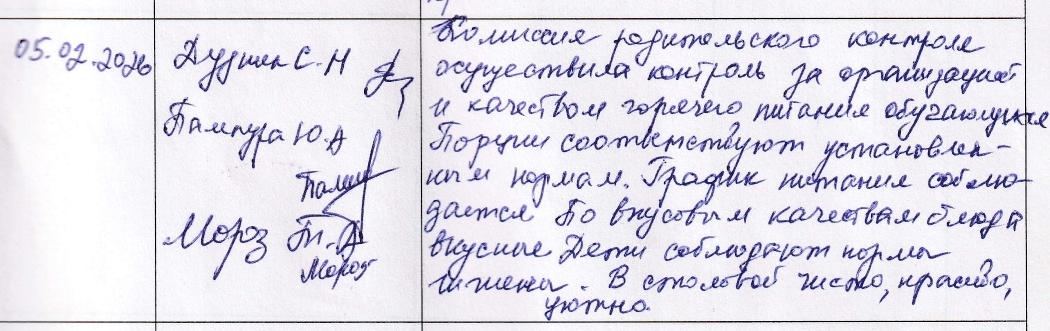 05.02.2026
Дудник С.Н
Пампура Ю.А
Мороз Т.А
Мороз
Комиссия родительского контроля
осуществила контроль за организацией
и качеством горячего питания обучающихся
Порции соответствуют установлен-
ным нормам. График питания соблю-
дается По вкусовым качествам блюда
вкусные Дети соблюдают нормы
гигиены. В столовой чисто, красиво,
уютно.